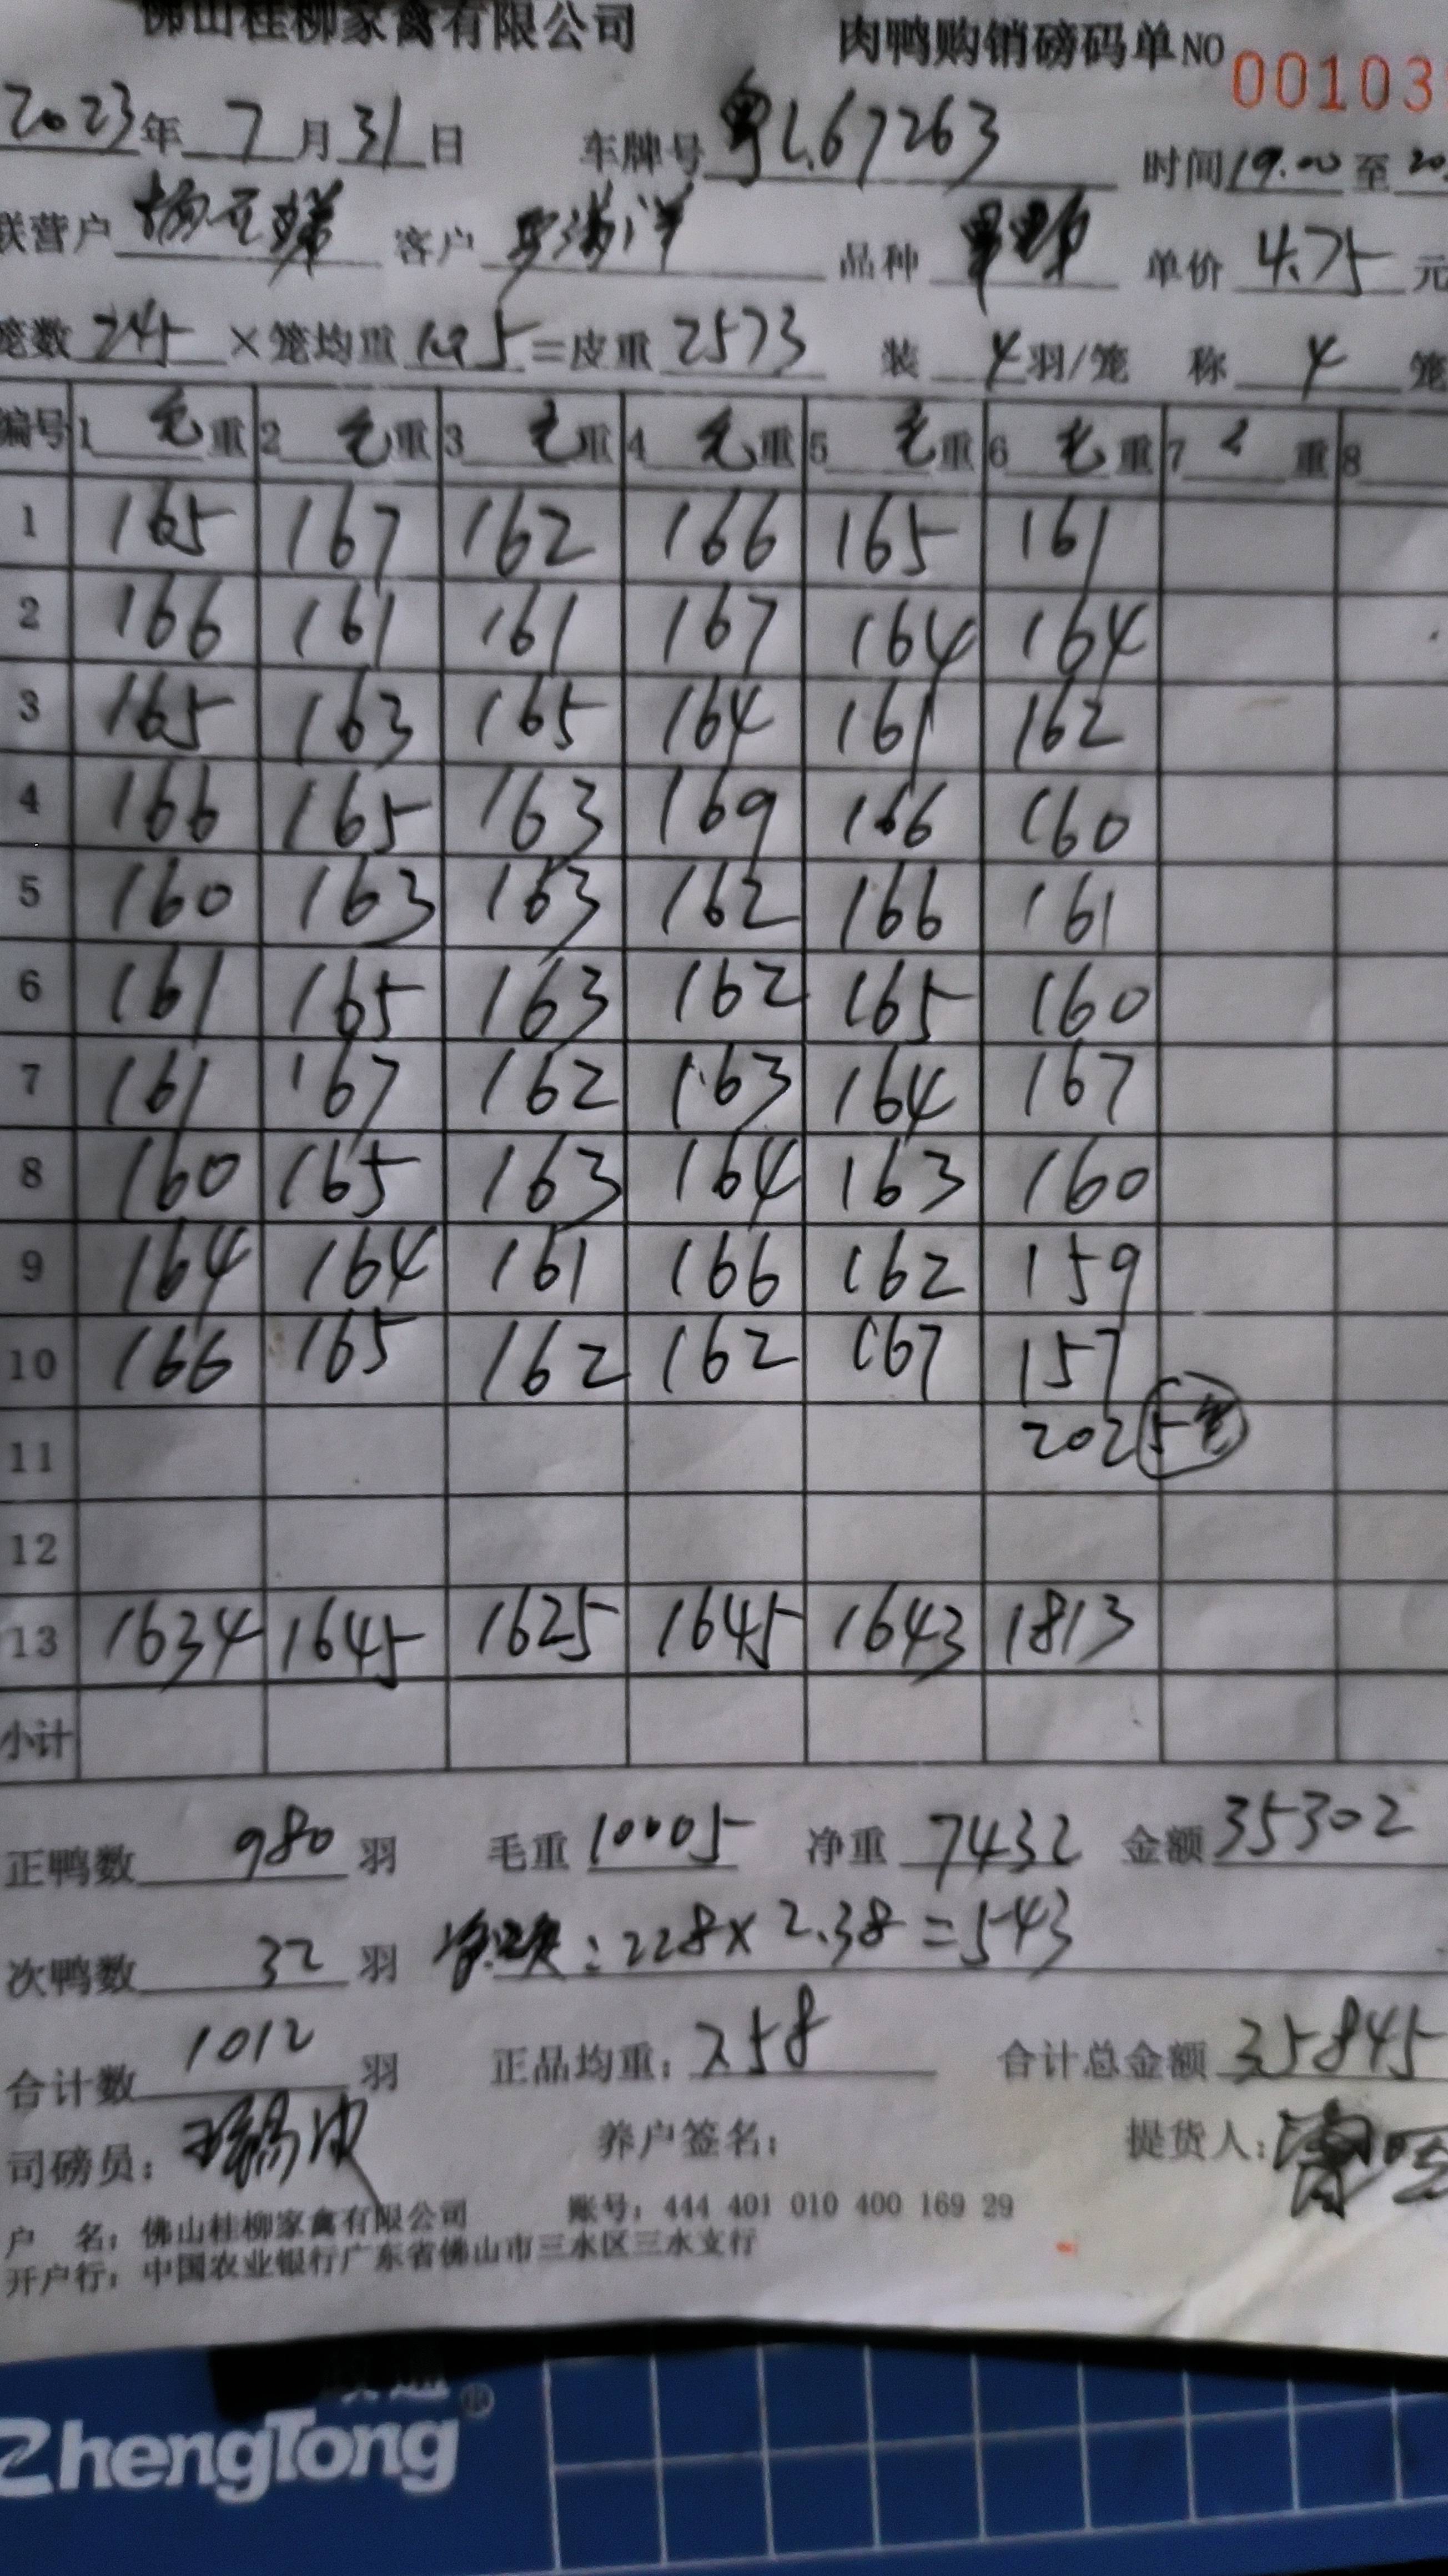 佛山桂柳家禽有限公司 肉鸭购销磅码单NO 00103
2023年7月31日 车牌号 粤L67263 时间19.00至20
联营户 客户 品种 单价 4.75 元
笼数 245 ×笼均重 10.5 =皮重 2573 装 4 羽/笼 称 4 笼
编号 1 毛重 2 毛重 3 毛重 4 毛重 5 毛重 6 毛重 7 重 8
1 165 167 162 166 165 161
2 166 161 161 167 164 164
3 165 163 165 164 161 162
4 166 165 163 169 166 160
5 160 163 163 162 166 161
6 161 165 163 162 165 160
7 161 167 162 163 164 167
8 160 165 163 164 163 160
9 164 164 161 166 162 159
10 166 165 162 162 167 157
11 202 5笼
12
13 1634 1645 1625 1645 1643 1813
小计
正鸭数 980 羽 毛重 10005 净重 7432 金额 35302
次鸭数 32 羽 : 228×2.38=543
合计数 1012 羽 正品均重: 7.58 合计总金额 35845
司磅员: 养户签名: 提货人:
户 名: 佛山桂柳家禽有限公司 账号: 444 401 010 400 169 29
开户行: 中国农业银行广东省佛山市三水区三水支行
ZhengTong